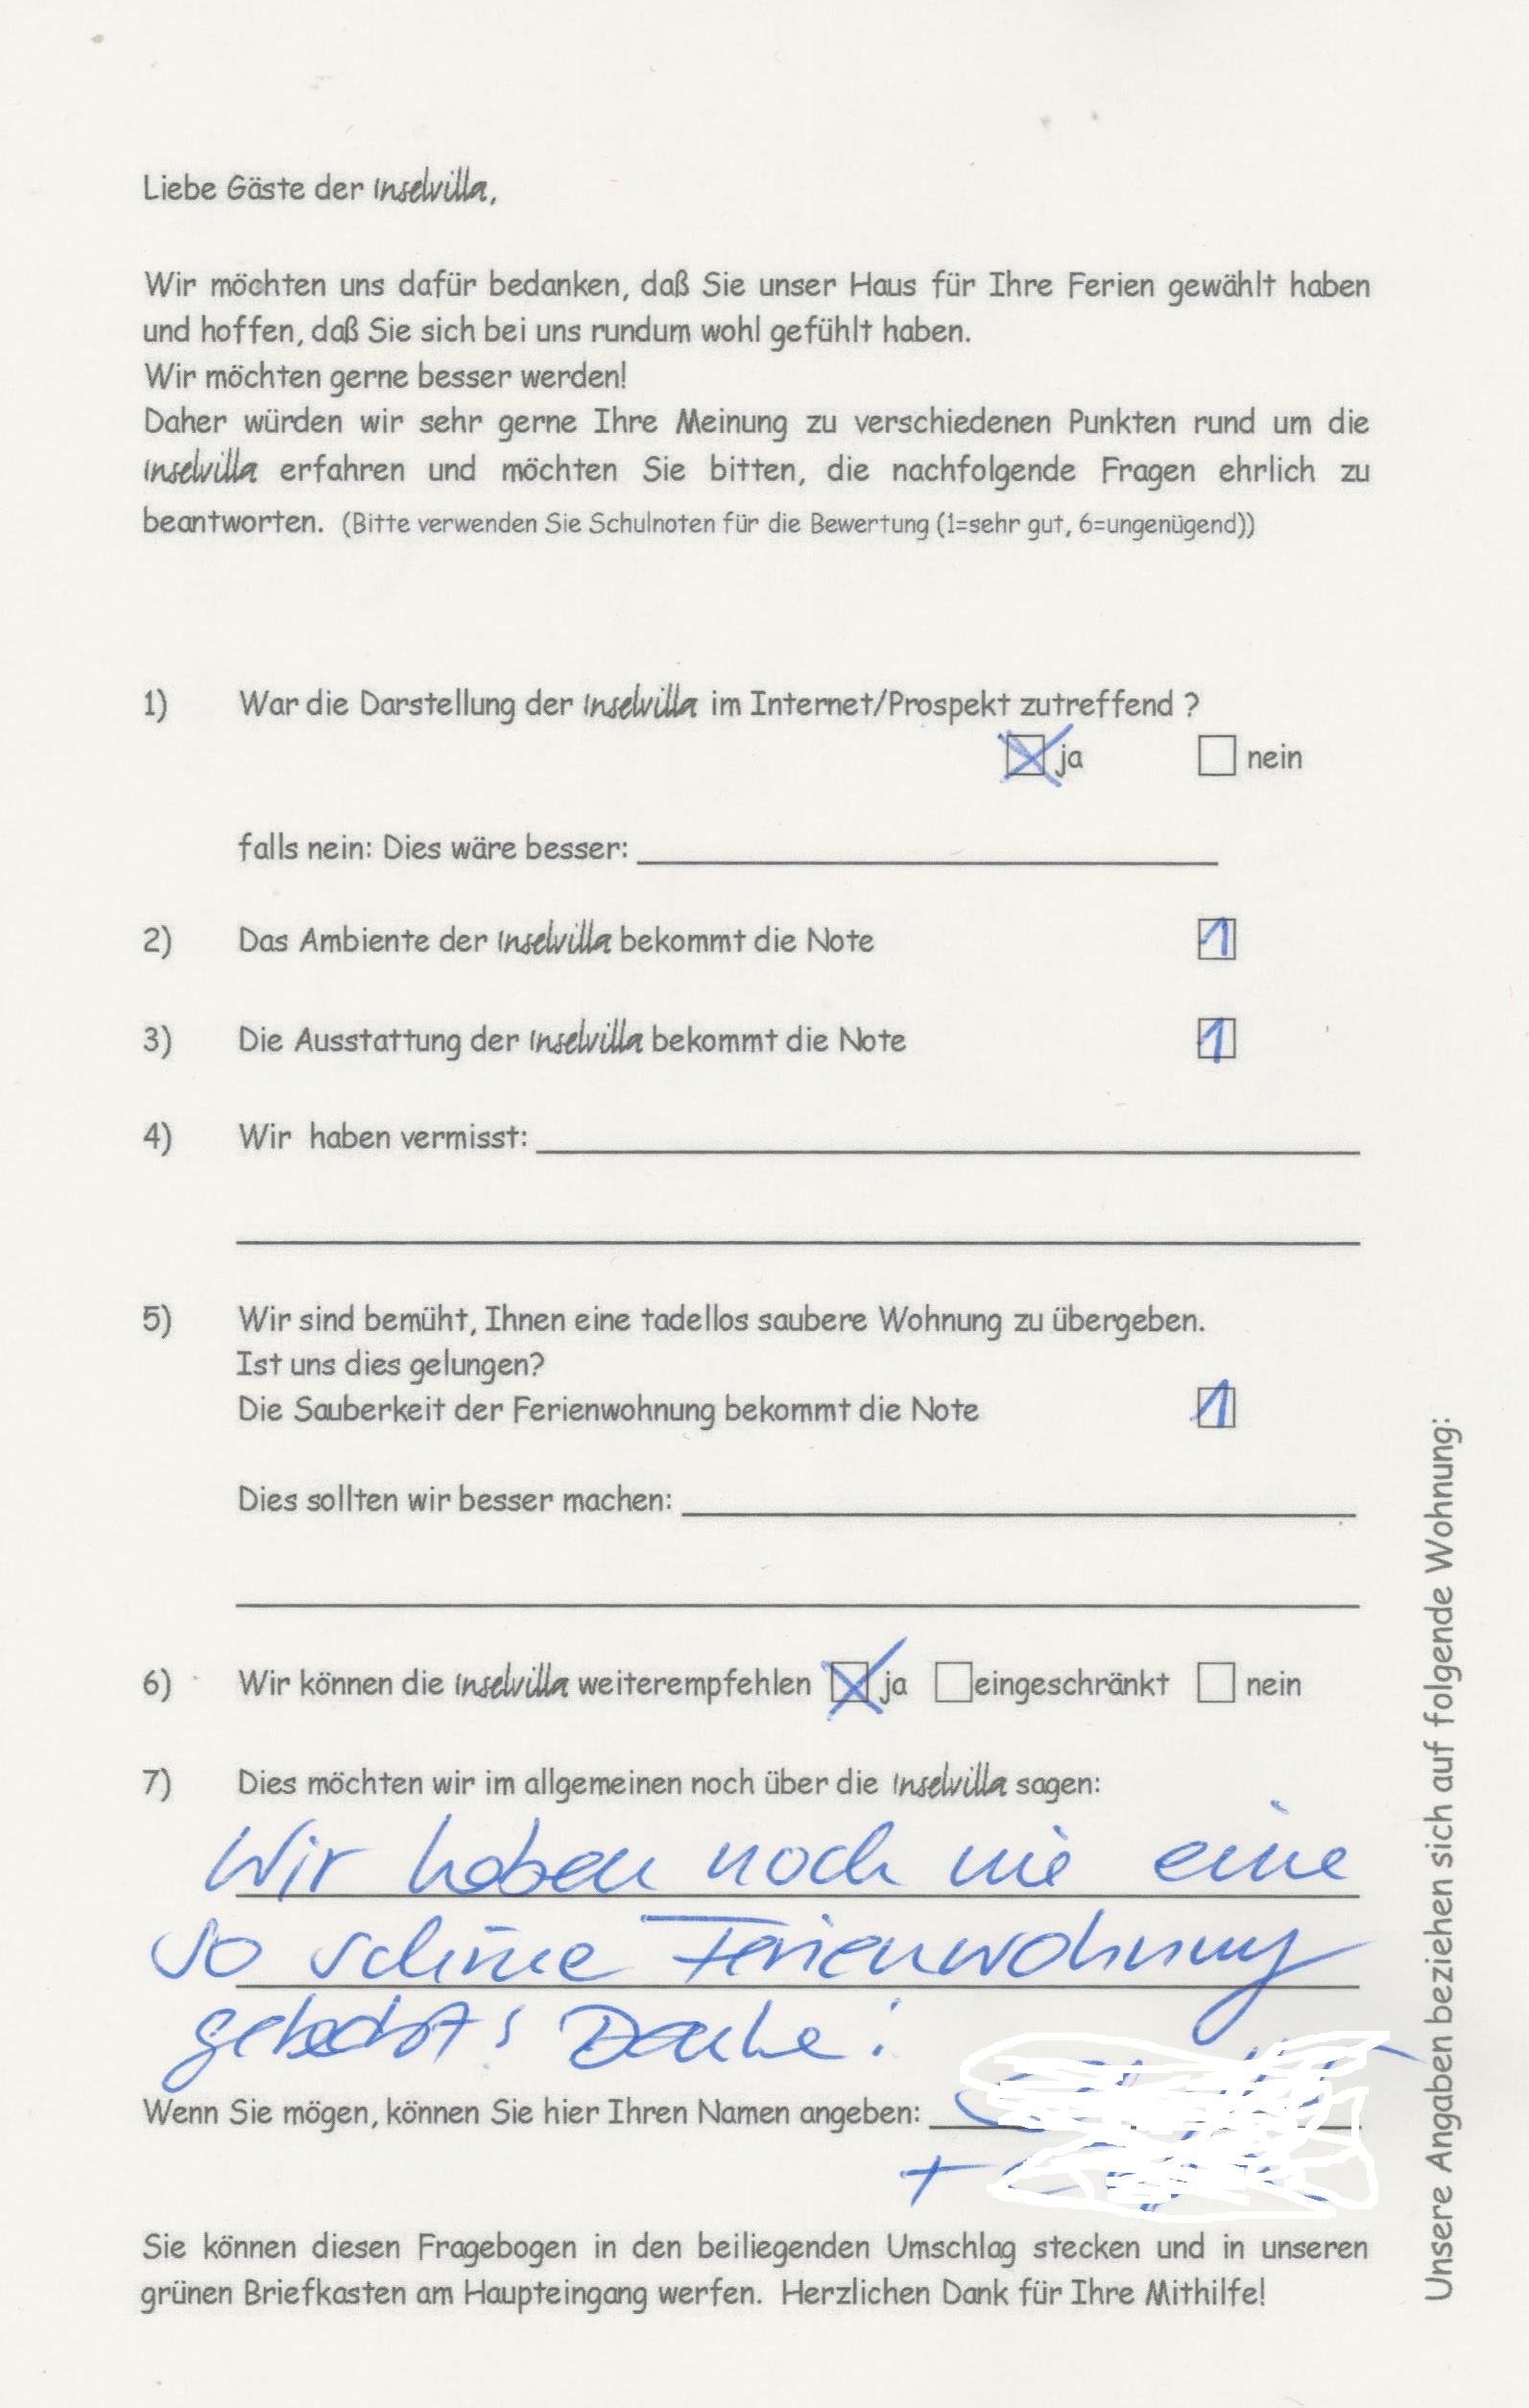 Liebe Gäste der Inselvilla,
Wir möchten uns dafür bedanken, daß Sie unser Haus für Ihre Ferien gewählt haben
und hoffen, daß Sie sich bei uns rundum wohl gefühlt haben.
Wir möchten gerne besser werden!
Daher würden wir sehr gerne Ihre Meinung zu verschiedenen Punkten rund um die
Inselvilla erfahren und möchten Sie bitten, die nachfolgende Fragen ehrlich zu
beantworten. (Bitte verwenden Sie Schulnoten für die Bewertung (1=sehr gut, 6=ungenügend))
1) War die Darstellung der Inselvilla im Internet/Prospekt zutreffend ?
ja nein
falls nein: Dies wäre besser:
2) Das Ambiente der Inselvilla bekommt die Note 1
3) Die Ausstattung der Inselvilla bekommt die Note 1
4) Wir haben vermisst:
5) Wir sind bemüht, Ihnen eine tadellos saubere Wohnung zu übergeben.
Ist uns dies gelungen?
Die Sauberkeit der Ferienwohnung bekommt die Note 1
Dies sollten wir besser machen:
6) Wir können die Inselvilla weiterempfehlen ja eingeschränkt nein
7) Dies möchten wir im allgemeinen noch über die Inselvilla sagen:
Wir haben noch nie eine
so schöne Ferienwohnung
gebucht! Danke!
Wenn Sie mögen, können Sie hier Ihren Namen angeben:
+
Sie können diesen Fragebogen in den beiliegenden Umschlag stecken und in unseren
grünen Briefkasten am Haupteingang werfen. Herzlichen Dank für Ihre Mithilfe!
Unsere Angaben beziehen sich auf folgende Wohnung: